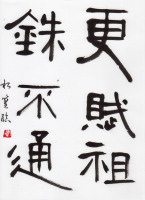 更賦祖
銖不通